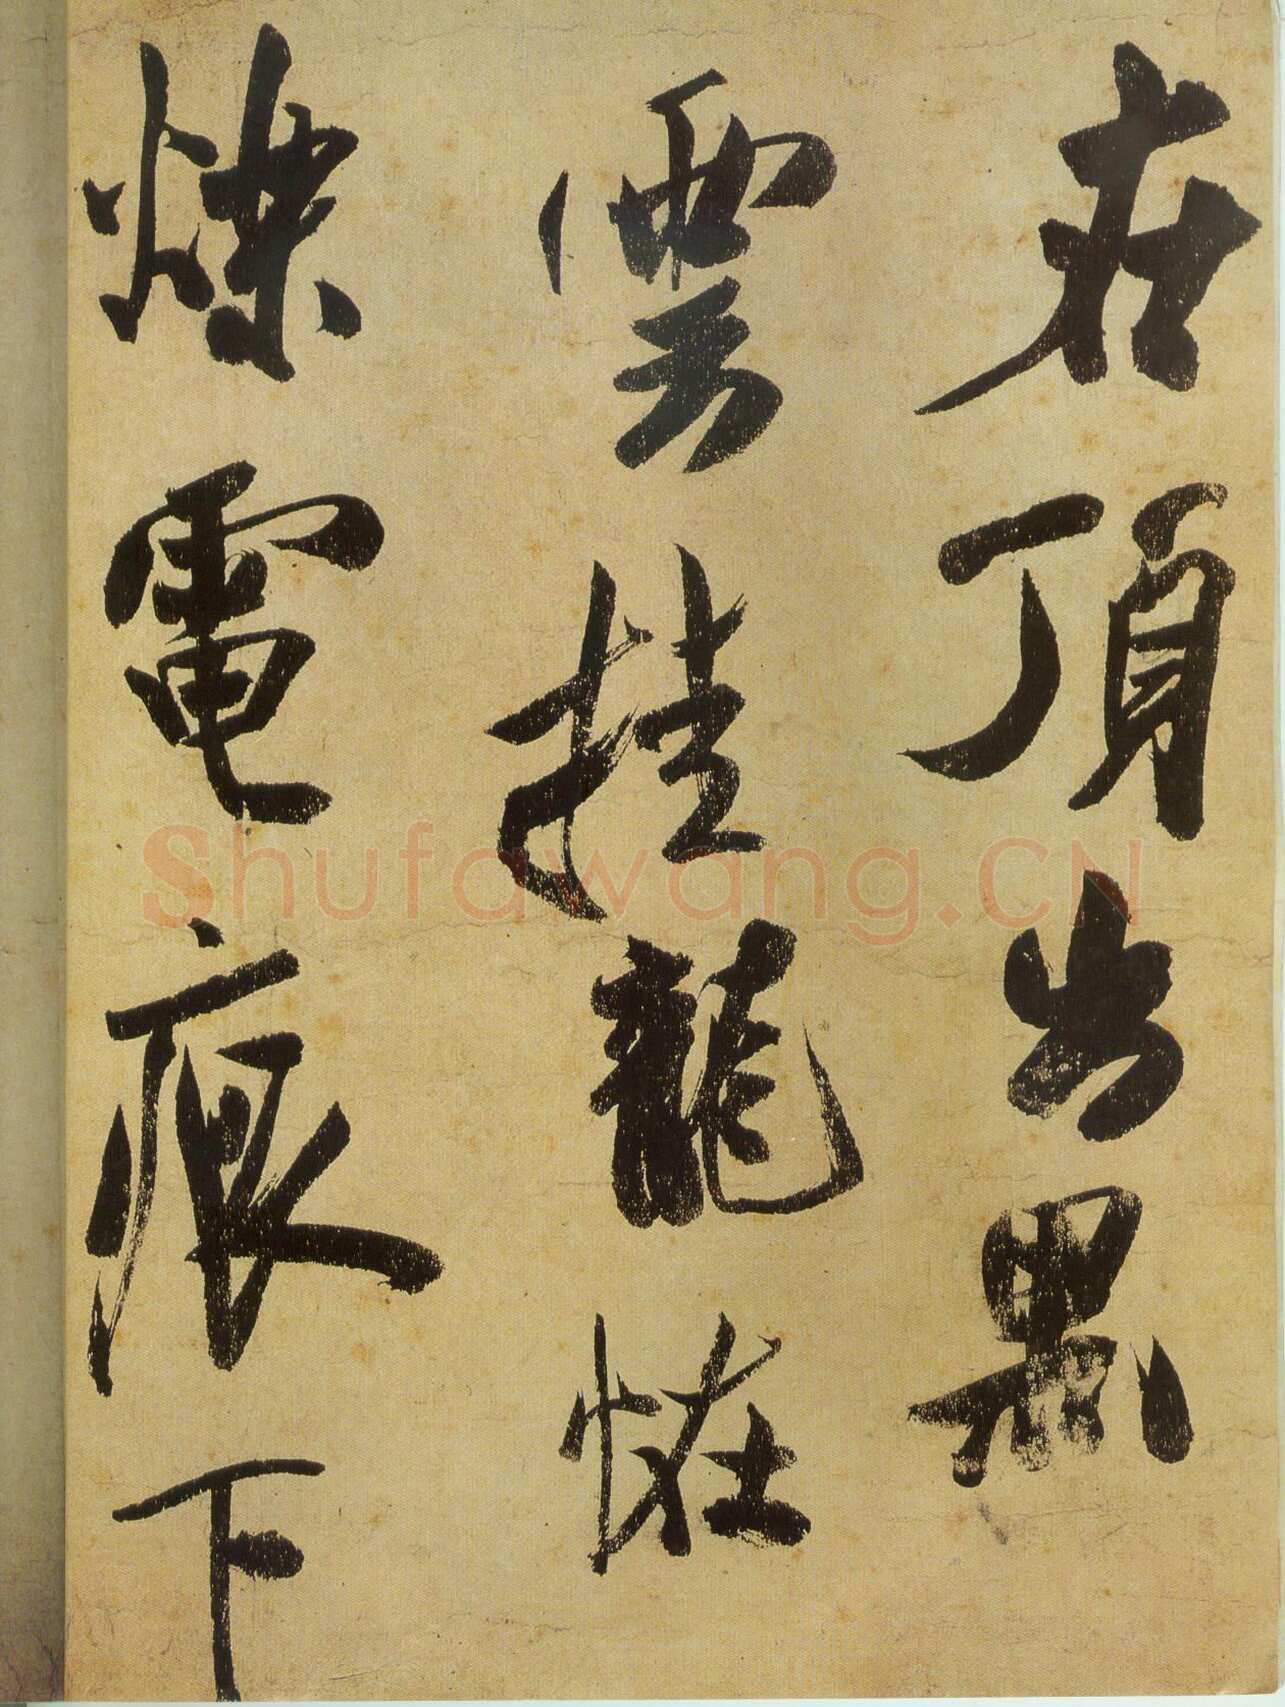 在頂出黑
雲挂龍怪
爍電痕下
Shufawang.CN